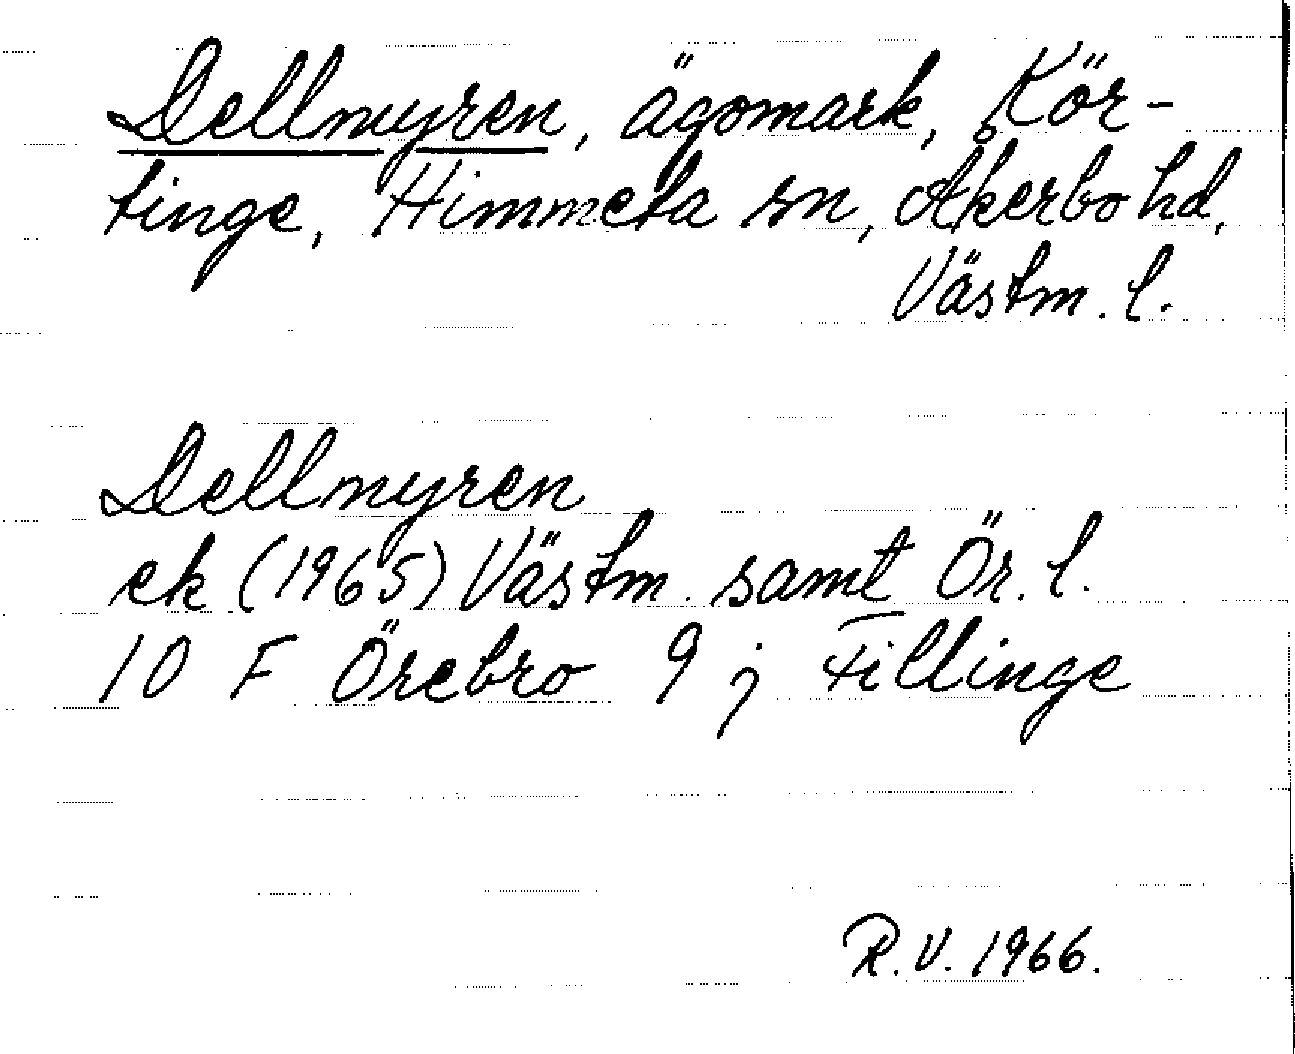 Dellmyren, ägomark, Kör-
tinge, Himmeta sn, Åkerbo hd,
Västm. l.
Dellmyren
ek (1965) Västm. samt Ör. l.
10 F Örebro 9 j Fillinge
R.V. 1966.